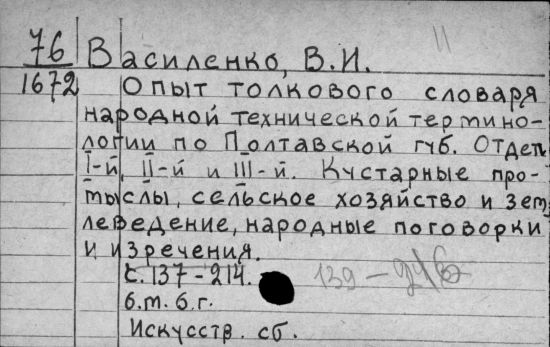 76 Василенко, В.И. 11
1672 Опыт толкового словаря
народной технической термино-
логии по Полтавской губ. Отдел
I-й, II-й и III-й. Кустарные про-
мыслы, сельское хозяйство и зем-
леведение, народные поговорки
и изречения.
с. 137-214. 139-
б.т. б.г.
Искусств. сб.